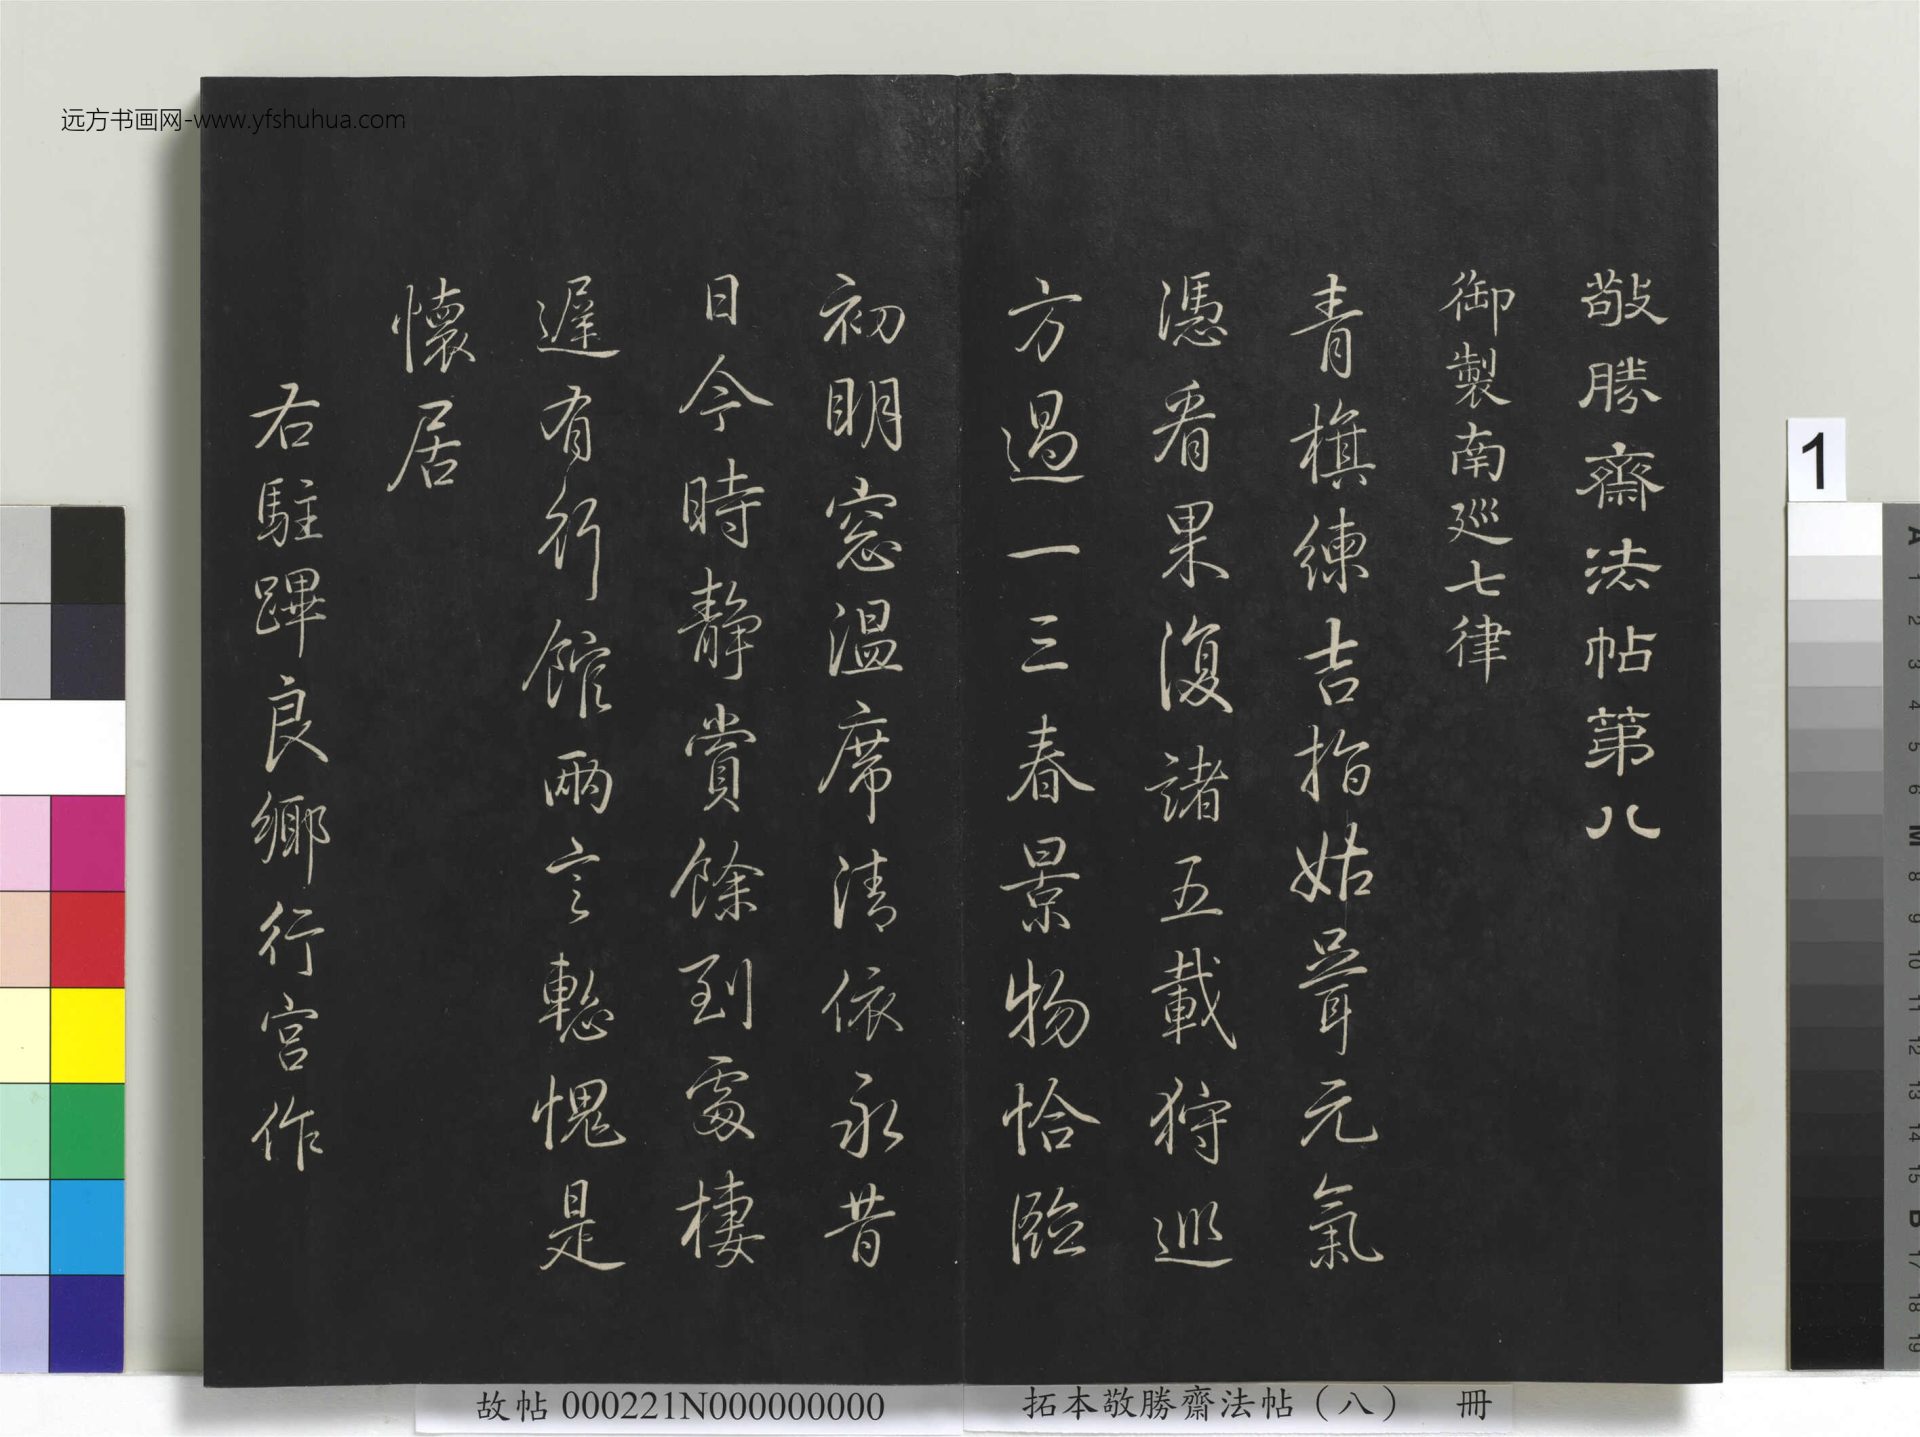 敬勝齋法帖第八
御製南廵七律
青旗練吉指姑聳元氣
憑看果復諸五載狩巡
方過一三春景物恰臨
初明窓温席清依永昔
日今時靜賞餘到處棲
遲有行館兩言慙愧是
懷居
右駐蹕良鄉行宮作
远方书画网-www.yfshuhua.com
故帖 000221N000000000
拓本敬勝齋法帖（八） 冊
1
A
1
2
3
4
5
6
M
8
9
10
11
12
13
14
15
B
17
18
19